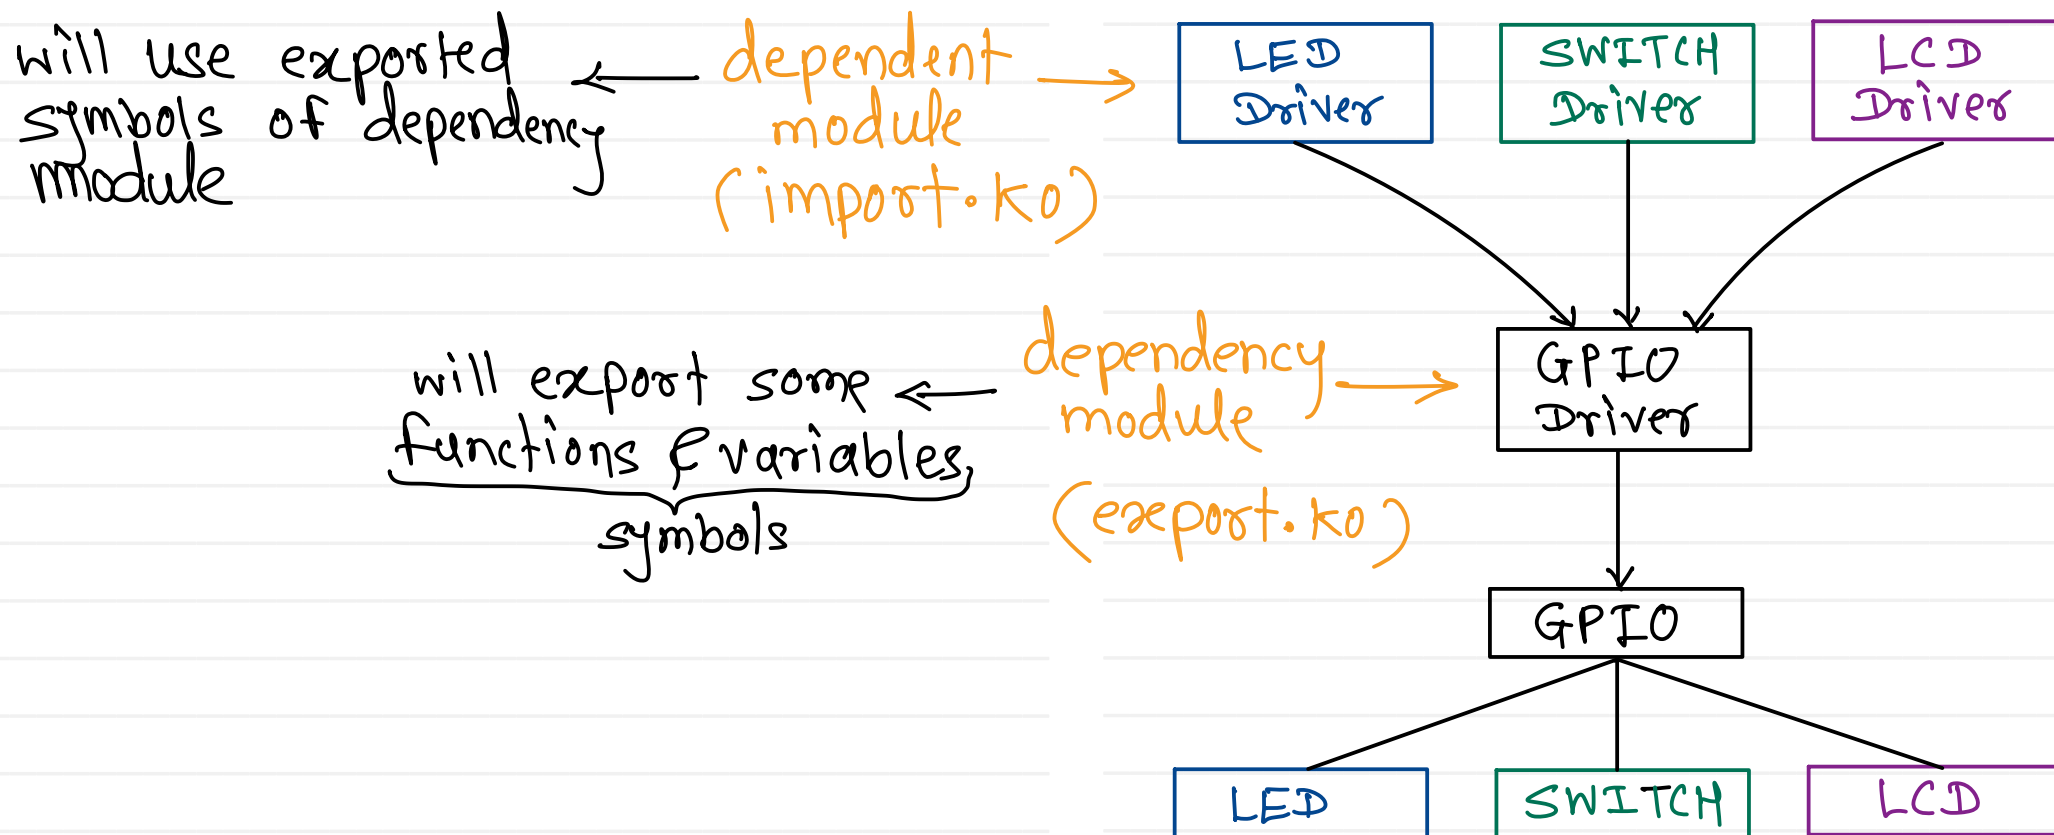 will use exported
symbols of dependency
module
dependent
module
(import.ko)
LED
Driver
SWITCH
Driver
LCD
Driver
will export some
functions & variables,
symbols
dependency
module
(export.ko)
GPIO
Driver
GPIO
LED
SWITCH
LCD